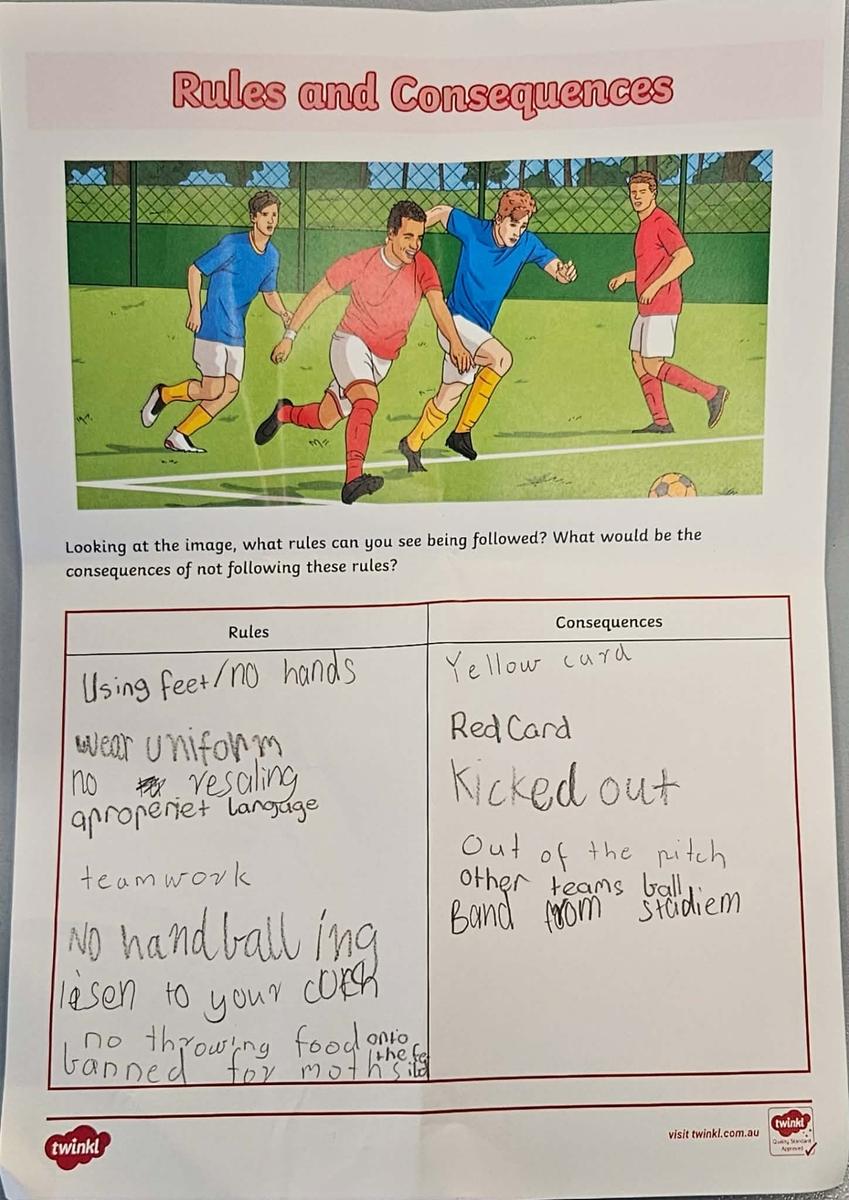 Rules and Consequences
Looking at the image, what rules can you see being followed? What would be the
consequences of not following these rules?
Rules
Using feet/no hands
wear uniform
no resaling
aproperiet langage
teamwork
NO handball ing
lisen to your coch
no throwing food onto
the feild
banned for moths
Consequences
Yellow card
Red Card
Kicked out
Out of the pitch
other teams ball
Band from stadiem
twinkl
visit twinkl.com.au
twinkl
Quality Standard
Approved